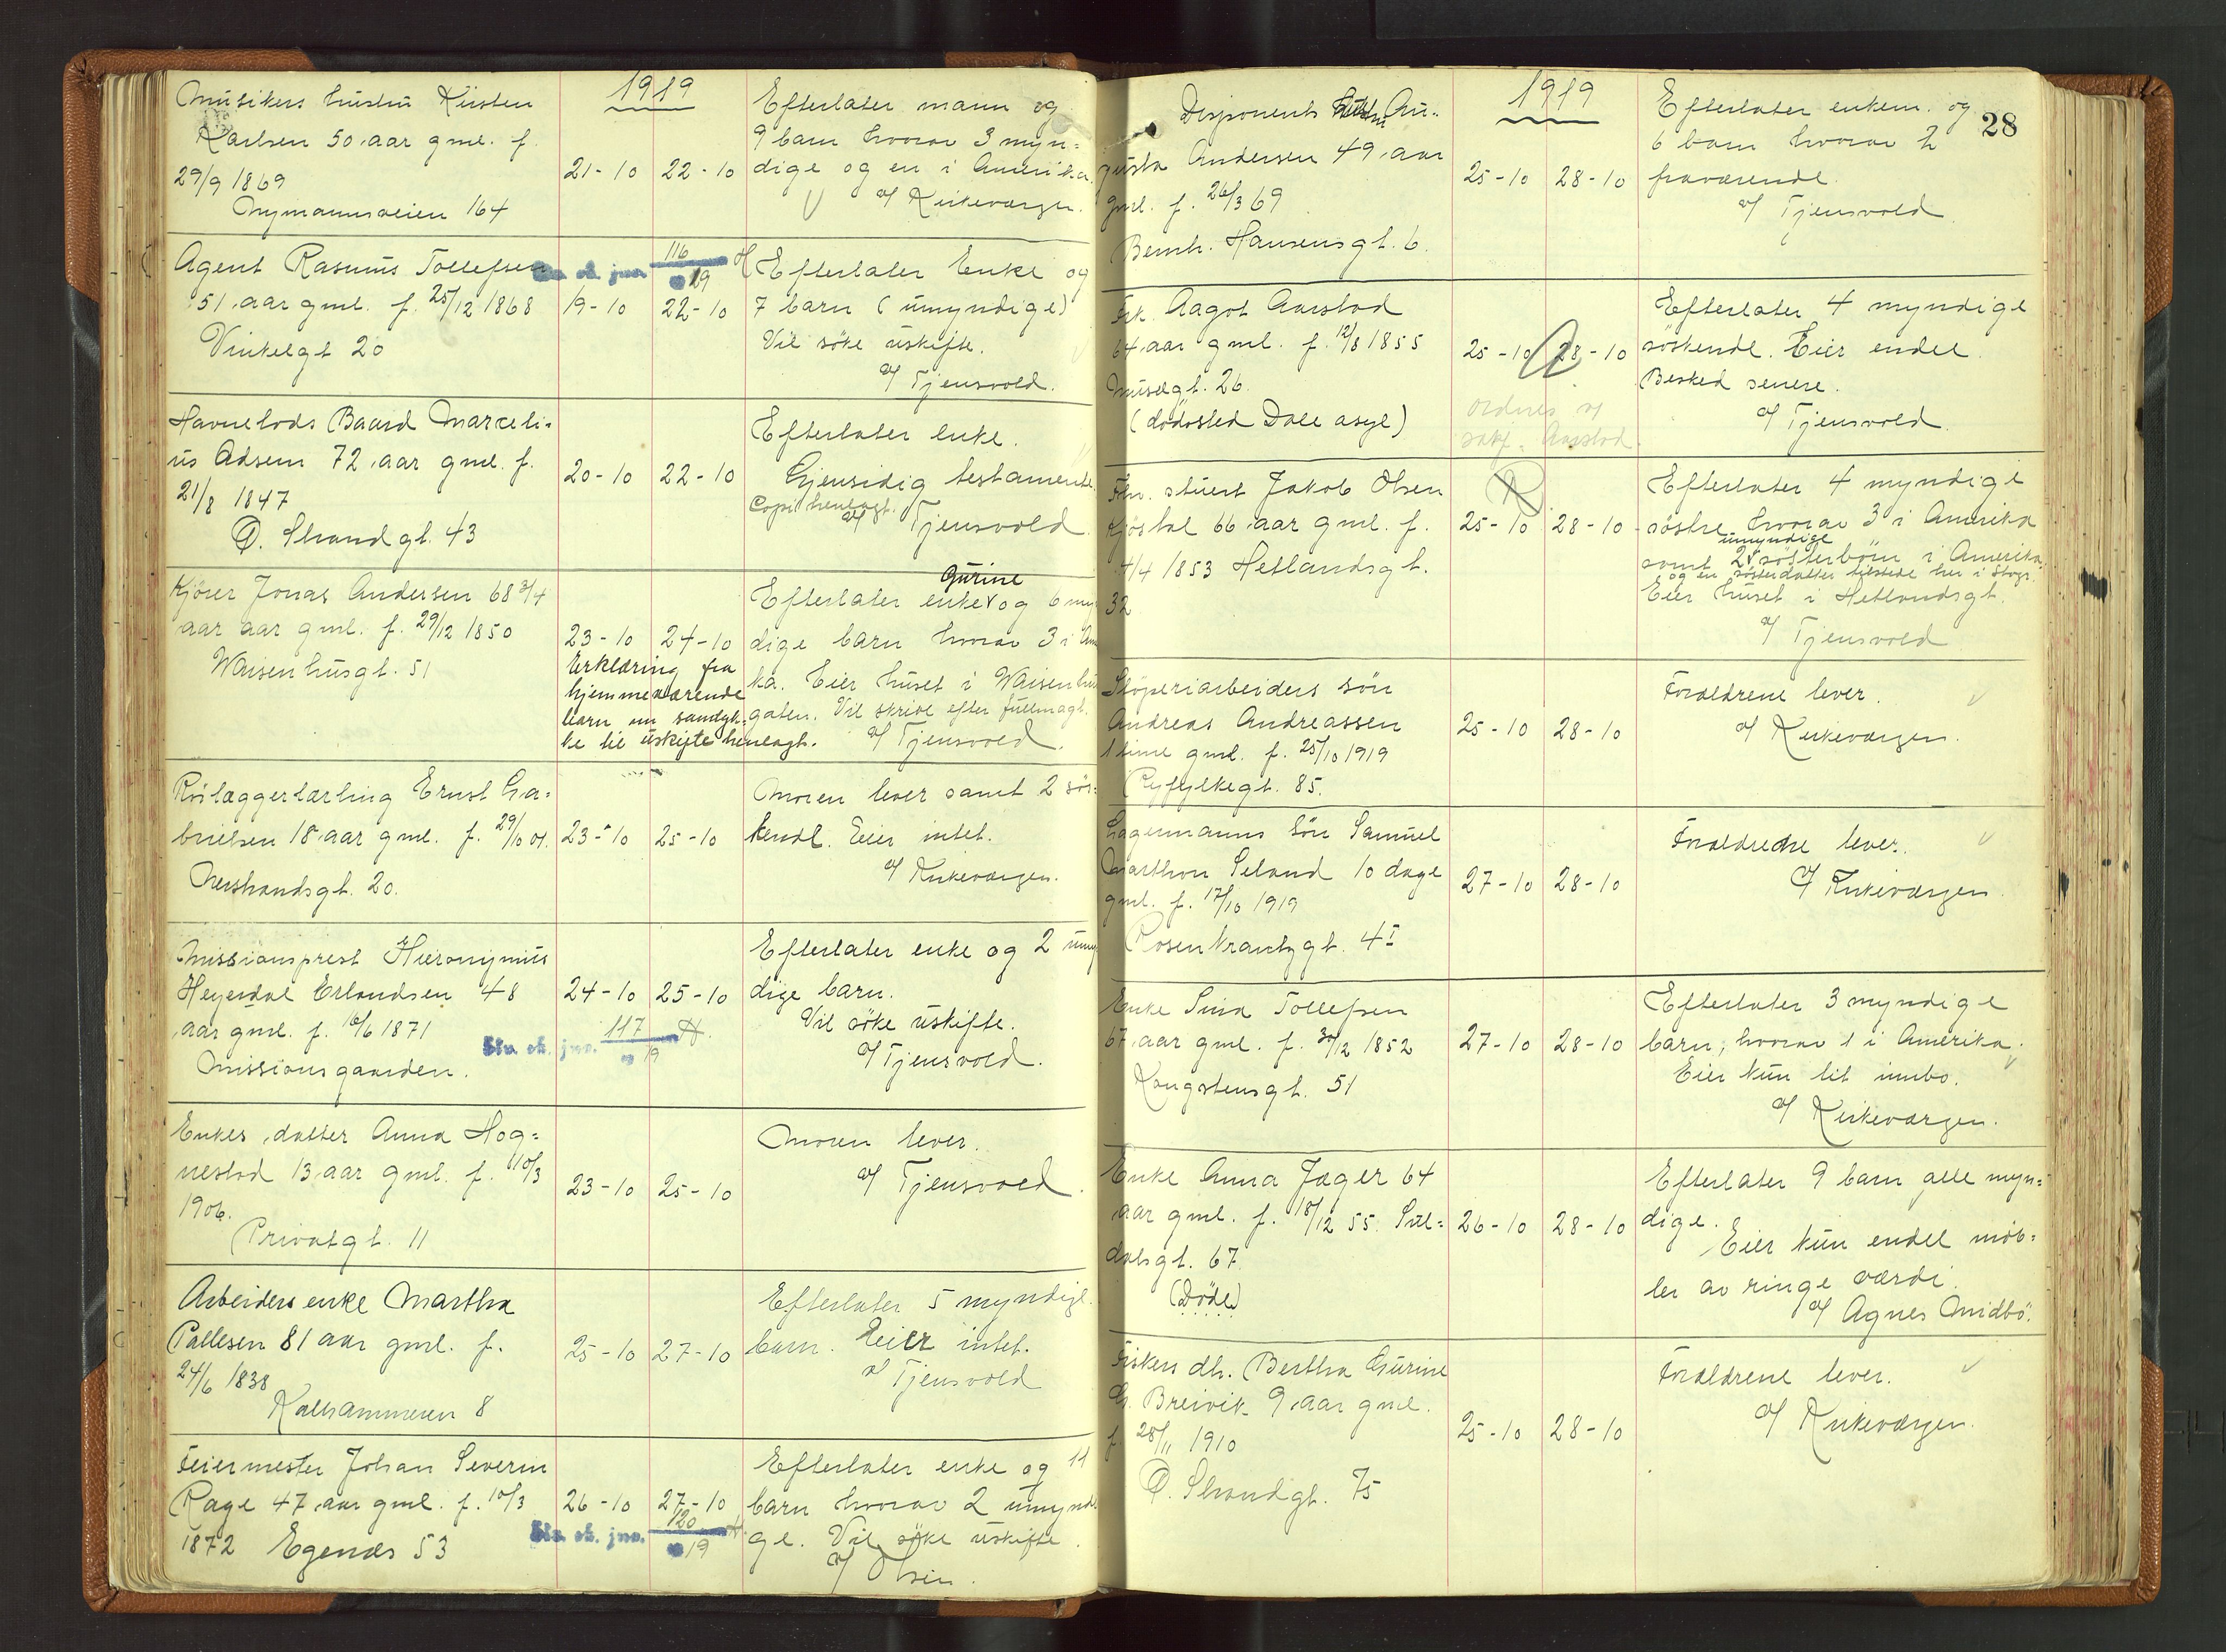 1919
Musikers hustru Kirsten
Karlsen 50 aar gml. f.
29/9 1869
Nymannsveien 164
21-10 22-10
Efterlater mann og
9 barn hvorav 3 myn-
dige og en i Amerika.
v/ Kirkeværgen.
Agent Rasmus Tollefsen
51 aar gml. f. 25/12 1868
Vinkelgt 20
116
19
19-10 22-10
Efterlater Enke og
7 barn (umyndige)
Vil söke uskifte.
v/ Tjensvold.
Havnelods Baard Marceli-
us Adsem 72 aar gml. f.
21/8 1847
Ö. Strandgt. 43
20-10 22-10
Efterlater enke.
Gjensidig testamente
Copi henlagt.
v/ Tjensvold
Kjörer Jonas Andersen 68 3/4
aar aar gml. f. 29/12 1850
Waisenhusgt. 51
23-10 24-10
Erklæring fra
hjemmeværende
barn om samtyk-
ke til uskifte henlagt.
Gurine
Efterlater enke og 6 myn
dige barn hvorav 3 i Am
ka. Eier huset i Waisenhus
gaten. Vil skrive efter fuldmagt.
v/ Tjensvold.
Rörlæggerlærling Ernst Ga-
brielsen 18 aar gml. f. 29/10 01.
Nerstrandsgt. 20.
23-10 25-10
Moren lever samt 2 sös-
kende. Eier intet.
v/ Kirkeværgen.
Missionsprest Hieronymus
Heyerdal Erlandsen 48
aar gml. f. 16/6 1871
Missionsgaarden.
24-10 25-10
117
19
Efterlater enke og 2 umyn
dige barn.
Vil söke uskifte.
v/ Tjensvold.
Enkes datter Anna Hog-
nestad 13 aar gml. f. 10/3
1906.
Privatgt. 11
23-10 25-10
Moren lever.
v/ Tjensvold.
Arbeiders enke Martha
Pallesen 81 aar gml. f.
24/6 1838
Kalhammeren 8
25-10 27-10
Efterlater 5 myndige
barn. Eier intet.
v/ Tjensvold
Feiermester Johan Severin
Rage 47 aar gml. f. 10/3
1872 Egenæs 53
26-10 27-10
120
19
Efterlater enke og 11
barn hvorav 2 umyndi
ge. Vil söke uskifte.
v/ Olsen.
28
1919
Disponents hustru Au-
gusta Andersen 49 aar
gml. f. 26/3 69
Bernh. Hansensgt. 6.
25-10 28-10
Efterlater enkem. og
6 barn hvorav 2
fraværende.
v/ Tjensvold
Frk. Aagot Aarstad
64 aar gml. f. 12/8 1855
Musegt. 26.
(dödssted Dale asyl)
25-10 28-10
Ordnes v/
sakf. Aarstad.
Efterlater 4 myndige
söskende. Eier endel.
Besked senere.
v/ Tjensvold.
Fhv. stuert Jakob Olsen
Kjöstal 66 aar gml. f.
4/4 1853 Hetlandsgt.
32
25-10 28-10
Efterlater 4 myndige
söstre hvorav 3 i Amerika
umyndige
samt 2 sösterbörn i Amerika
og en sösterdatter tilstede her i Stvgr.
Eier huset i Hetlandsgt.
v/ Tjensvold
Stöperiarbeiders sön
Andreas Andreassen
1 time gml. f. 25/10 1919
Ryfylkegt. 85.
25-10 28-10
Forældrene lever.
v/ Kirkeværgen.
Lagermanns sön Samuel
Marthon Seland 10 dage
gml. f. 17/10 1919
Rosenkrantzgt. 4 I
27-10 28-10
Forældrene lever.
v/ Kirkeværgen
Enke Sina Tollefsen
67 aar gml. f. 30/12 1852
Kongstensgt. 51
27-10 28-10
Efterlater 3 myndige
barn, hvorav 1 i Amerika.
Eier kun lit innbo.
v/ Kirkeværgen.
Enke Anna Jæger 64
aar gml. f. 18/12 55. Sul-
dalsgt. 67.
(Döde)
26-10 28-10
Efterlater 9 barn alle myn-
dige.
Eier kun endel möb-
ler av ringe værdi.
v/ Agnes Midbö.
Fiskers dtr. Bertha Gurine
G. Breivik 9 aar gml.
f. 28/11 1910
Ö. Strandgt. 75
25-10 28-10
Forældrene lever.
v/ Kirkeværgen.